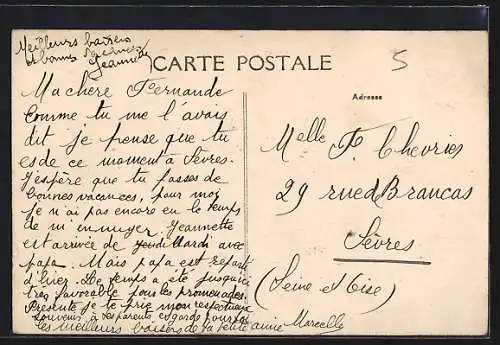 Meilleurs baisers
et bonnes vacances
Jeannette
CARTE POSTALE
5
Adresse
Ma chère Fernande
Comme tu me l'avais
dit je pense que tu
es de ce moment à Sèvres.
J'espère que tu passes de
bonnes vacances, pour moi
je n'ai pas encore eu le temps
de m'ennuyer. Jeannette
est arrivée de jeudi Mardi avec
papa. Mais papa est reparti
d'hier. Le temps a été jusqu'ici
très favorable pour les promenades.
Présente je te prie mon respectueux
souvenir à tes parents et garde pour toi
les meilleurs baisers de ta petite amie Marcelle
Melle F. Chevrier
29 rue d Brancas
Sèvres
(Seine et Oise)